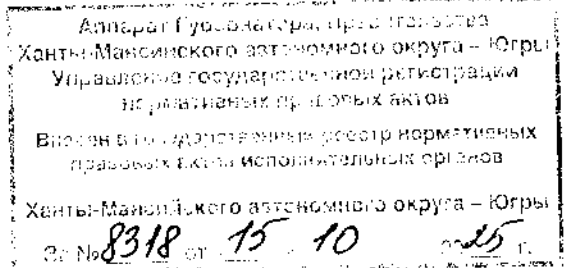 Аппарат Губернатора, Правительства
Ханты-Мансийского автономного округа – Югры
Управление государственной регистрации
нормативных правовых актов
Внесен в государственный реестр нормативных
правовых актов исполнительных органов
Ханты-Мансийского автономного округа – Югры
За № 8318 от 15 . 10 2025 г.